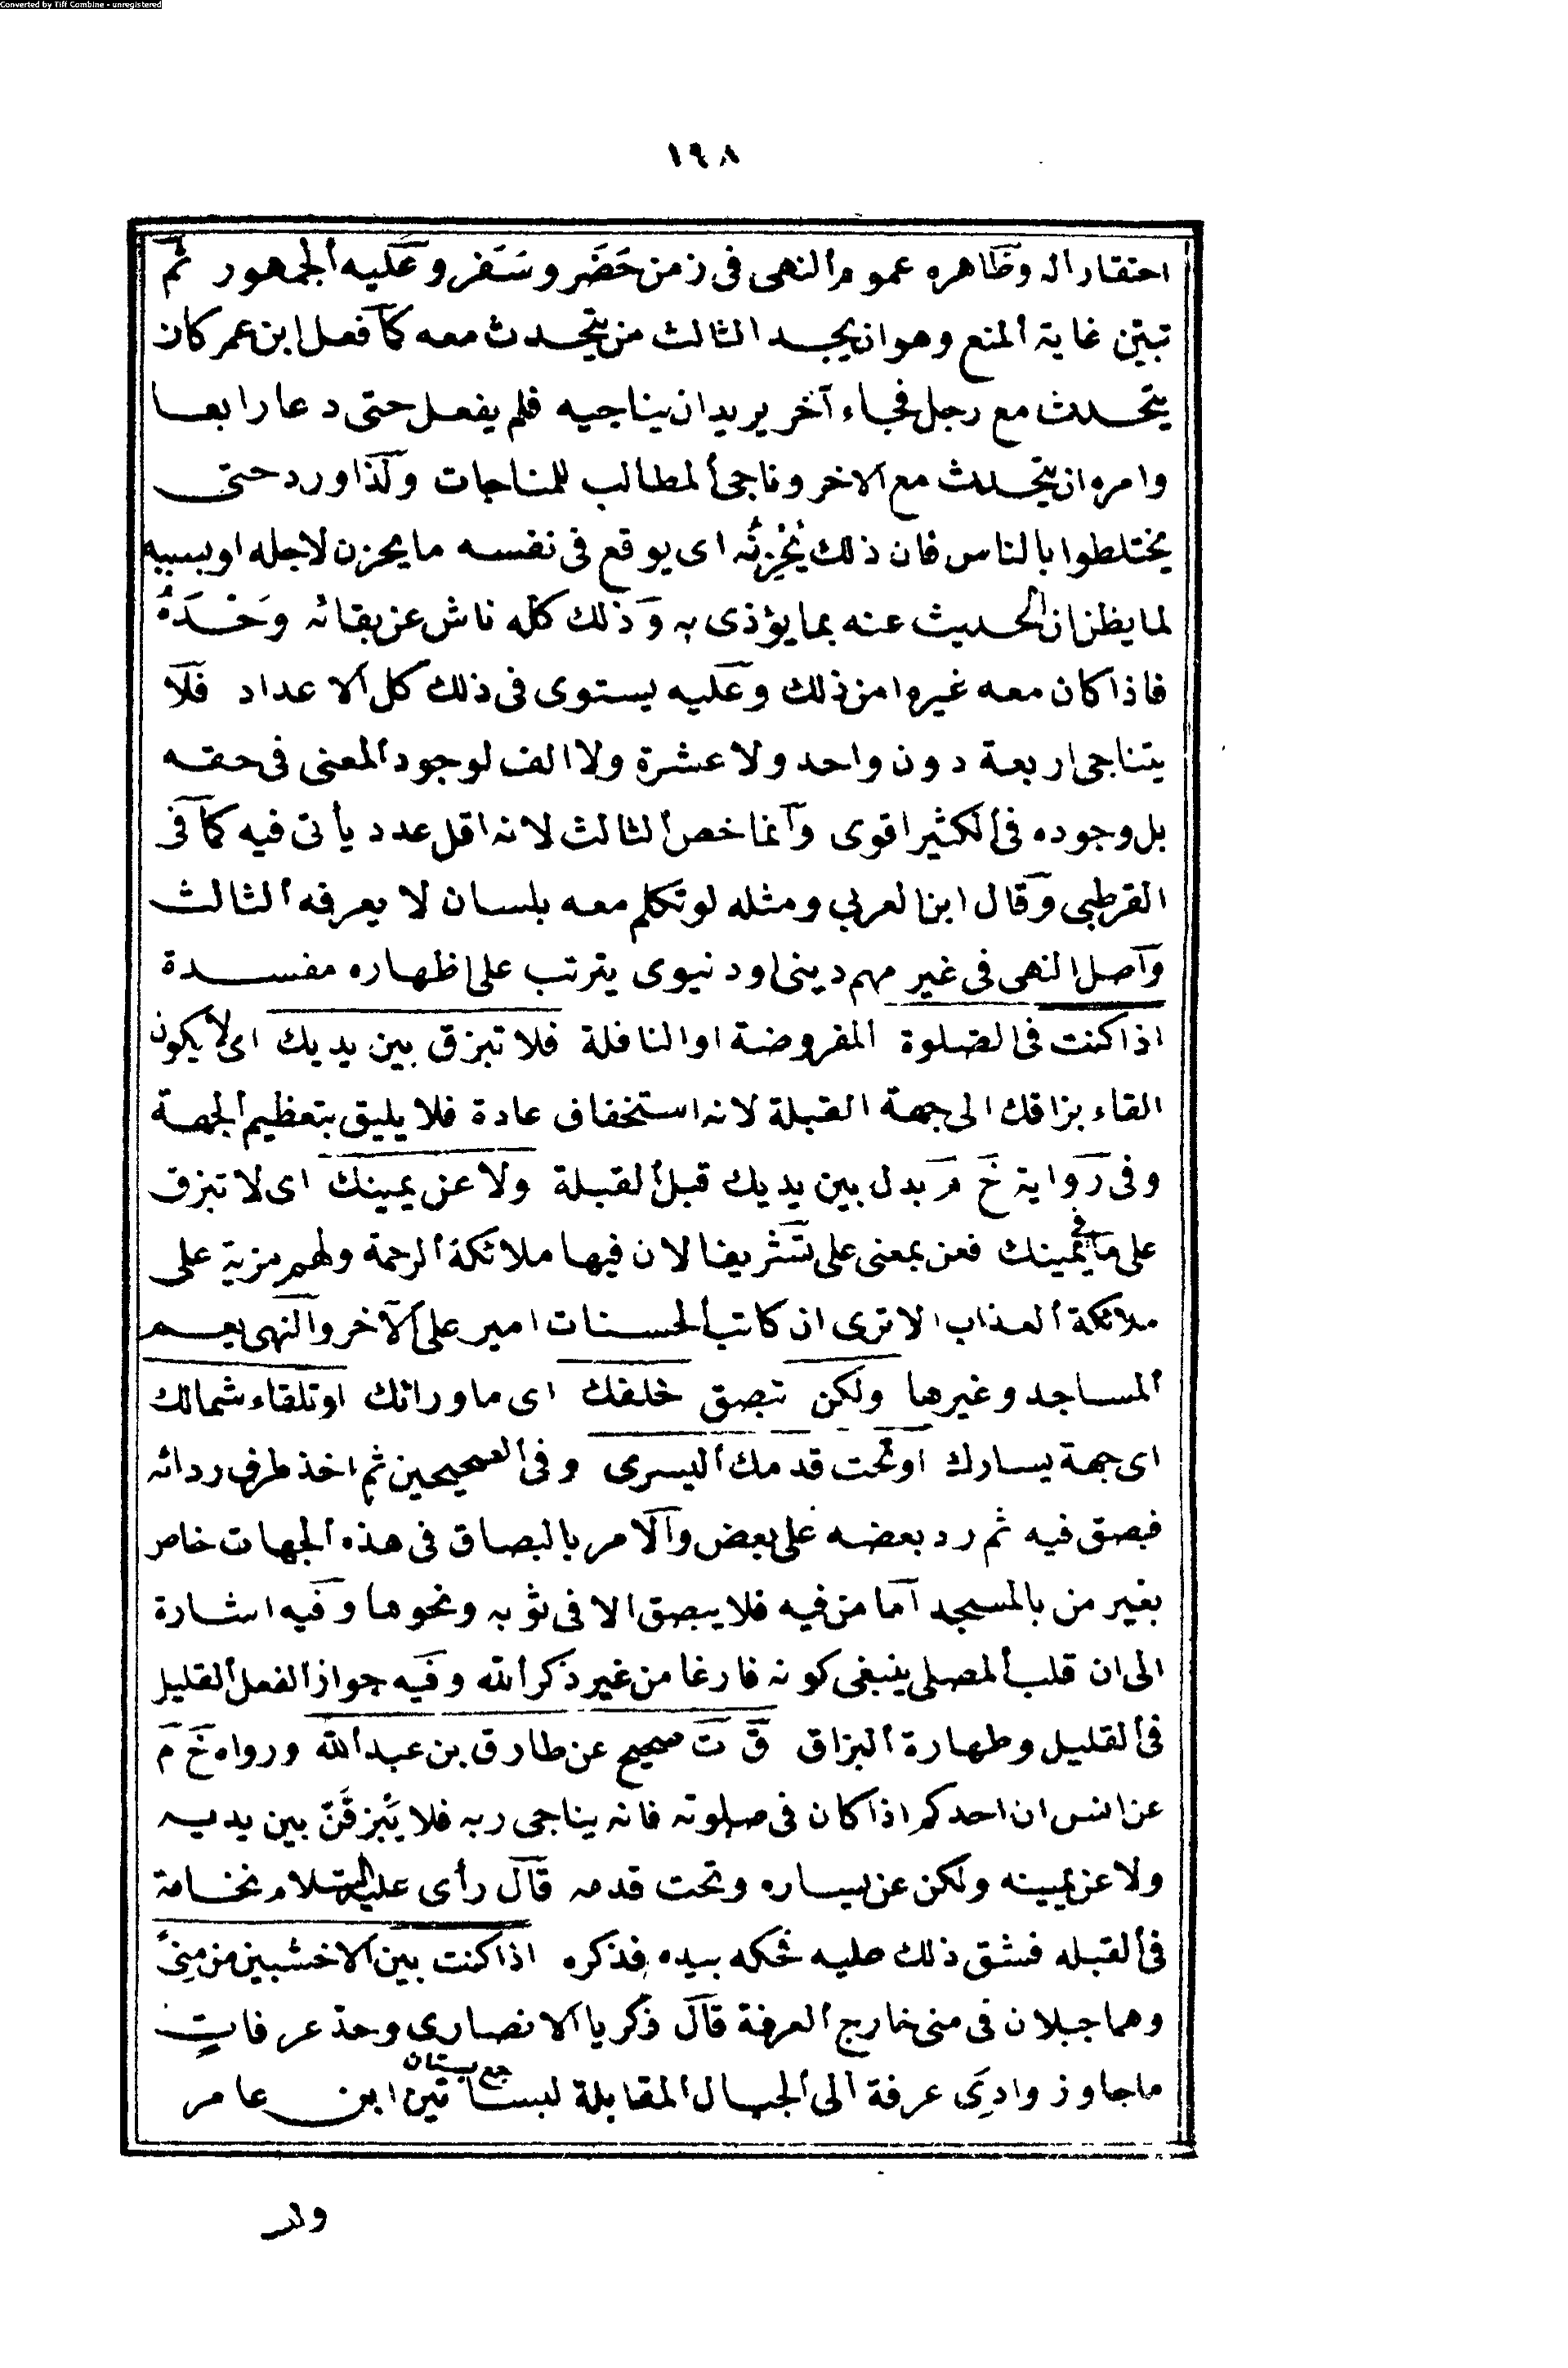 Converted by Tiff Combine - unregistered
١٩٨
احتقارا له وظاهره عموم النهى فى زمن حَضَر وسَفر وعليه الجمهور ثم
تبين غاية المنع وهو ان يجد الثالث من يتحدث معه كما فعل ابن عمر كان
يتحدث مع رجل فجاء آخر يريد ان يناجيه فلم يفعل حتى دعا رابعا
وامره ان يتحدث مع الاخر وناجى المطالب للمناجات وكذا ورد حتى
يختلطوا بالناس فان ذلك يُحْزِنُه اى يوقع فى نفسه ما يحزن لاجله او بسببه
لما يظن ان الحديث عنه بما يؤذى به وذلك كله ناش عن بقائه وَحْدَهُ
فاذا كان معه غيره امن ذلك وعليه يستوى فى ذلك كل الاعداد فلا
يتناجى اربعة دون واحد ولا عشرة ولا الف لوجود المعنى فى حقه
بل وجوده فى الكثير اقوى وانما خص الثالث لانه اقل عدد يأتى فيه كما فى
القرطبى وقال ابن العربي ومثله لو تكلم معه بلسان لا يعرفه الثالث
واصل النهى فى غير مهم دينى او دنيوى يترتب على اظهاره مفسدة
اذا كنت فى الصلوة المفروضة او النافلة فلا تبزق بين يديك اى لا يكون
القاء بزاقك الى جهة القبلة لانه استخفاف عادة فلا يليق بتعظيم الجهة
وفى رواية خ م بدل بين يديك قبل القبلة ولا عن يمينك اى لا تبزق
على ما فى يمينك فعن بمعنى على تشريفا لان فيها ملائكة الرحمة ولهم مزية على
ملائكة العذاب الا ترى ان كاتب الحسنات امير على الآخر والنهى يعم
المساجد وغيرها ولكن تبصق خلفك اى ما ورائك او تلقاء شمالك
اى جهة يسارك او تحت قدمك اليسرى وفى الصحيحين ثم اخذ طرف ردائه
فبصق فيه ثم رد بعضه على بعض والامر بالبصاق فى هذه الجهات خاص
بغير من بالمسجد اما من فيه فلا يبصق الا فى ثوبه ونحوها وفيه اشارة
الى ان قلب المصلى ينبغى كونه فارغا من غير ذكر الله وفيه جواز الفعل القليل
فى القليل وطهارة البزاق ق ت صحيح عن طارق بن عبد الله ورواه خ م
عن انس ان احدكم اذا كان فى صلوته فانه يناجى ربه فلا يَبْزقَنّ بين يديه
ولا عن يمينه ولكن عن يساره وتحت قدمه قال رأى عليه السلام نخامة
فى القبله فشق ذلك عليه فحكه بيده فذكره اذا كنت بين الاخشبين من مِنىً
وهما جبلان فى منى خارج العرفة قال ذكريا الانصارى وحد عرفات
جمع بستان
ما جاوز وادى عرفة الى الجبال المقابلة لبساتين ابن عامر